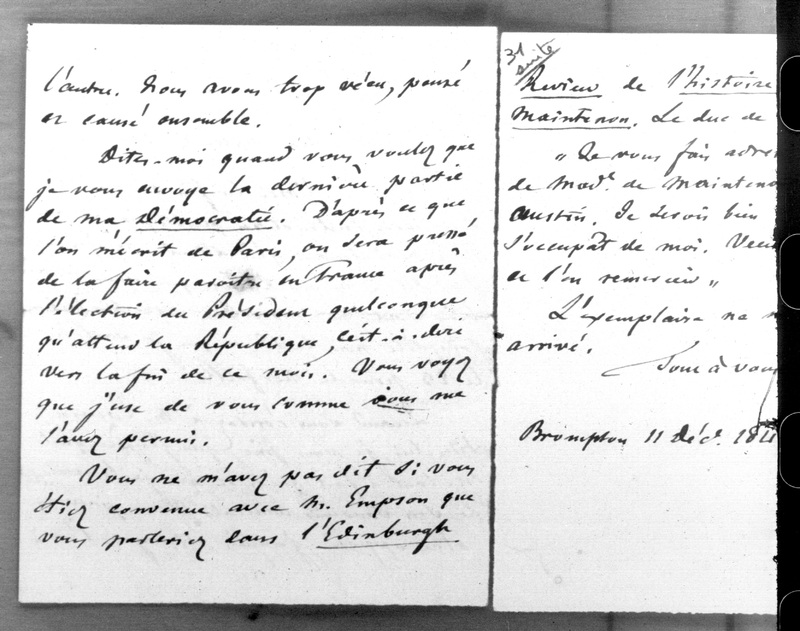 l'autre. Nous avons trop vécu, pensé
et causé ensemble.
Dites-moi quand vous voulez que
je vous envoye la dernière partie
de ma Démocratie. D'après ce que
l'on m'écrit de Paris, on sera pressé
de la faire paroître en France après
l'élection du Président quelconque
qu'attend la République, c'est-à-dire
vers la fin de ce mois. Vous voyez
que j'use de vous comme vous me
l'avez permis.
Vous ne m'avez pas dit si vous
étiez convenue avec Mr. Empson que
vous parleriez dans l'Edinburgh
31
suite
Review de l'histoire
Maintenon. Le duc de
"Je vous fais adres
de Made. de Mainteno
Austin. Je serois bien
s'occupât de moi.
et l'en remercier"
L'exemplaire ne
arrivé.
Tout à vous
Brompton 11 Déc. 184